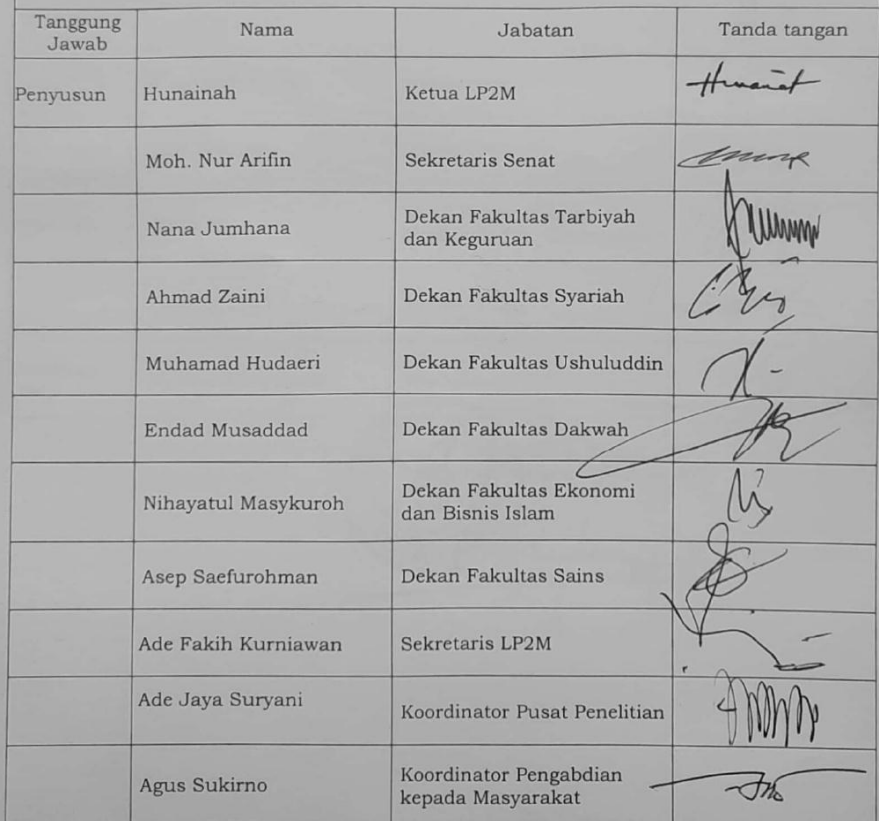 Tanggung
Jawab
Nama
Jabatan
Tanda tangan
Penyusun
Hunainah
Ketua LP2M
Moh. Nur Arifin
Sekretaris Senat
Nana Jumhana
Dekan Fakultas Tarbiyah
dan Keguruan
Ahmad Zaini
Dekan Fakultas Syariah
Muhamad Hudaeri
Dekan Fakultas Ushuluddin
Endad Musaddad
Dekan Fakultas Dakwah
Nihayatul Masykuroh
Dekan Fakultas Ekonomi
dan Bisnis Islam
Asep Saefurohman
Dekan Fakultas Sains
Ade Fakih Kurniawan
Sekretaris LP2M
Ade Jaya Suryani
Koordinator Pusat Penelitian
Agus Sukirno
Koordinator Pengabdian
kepada Masyarakat